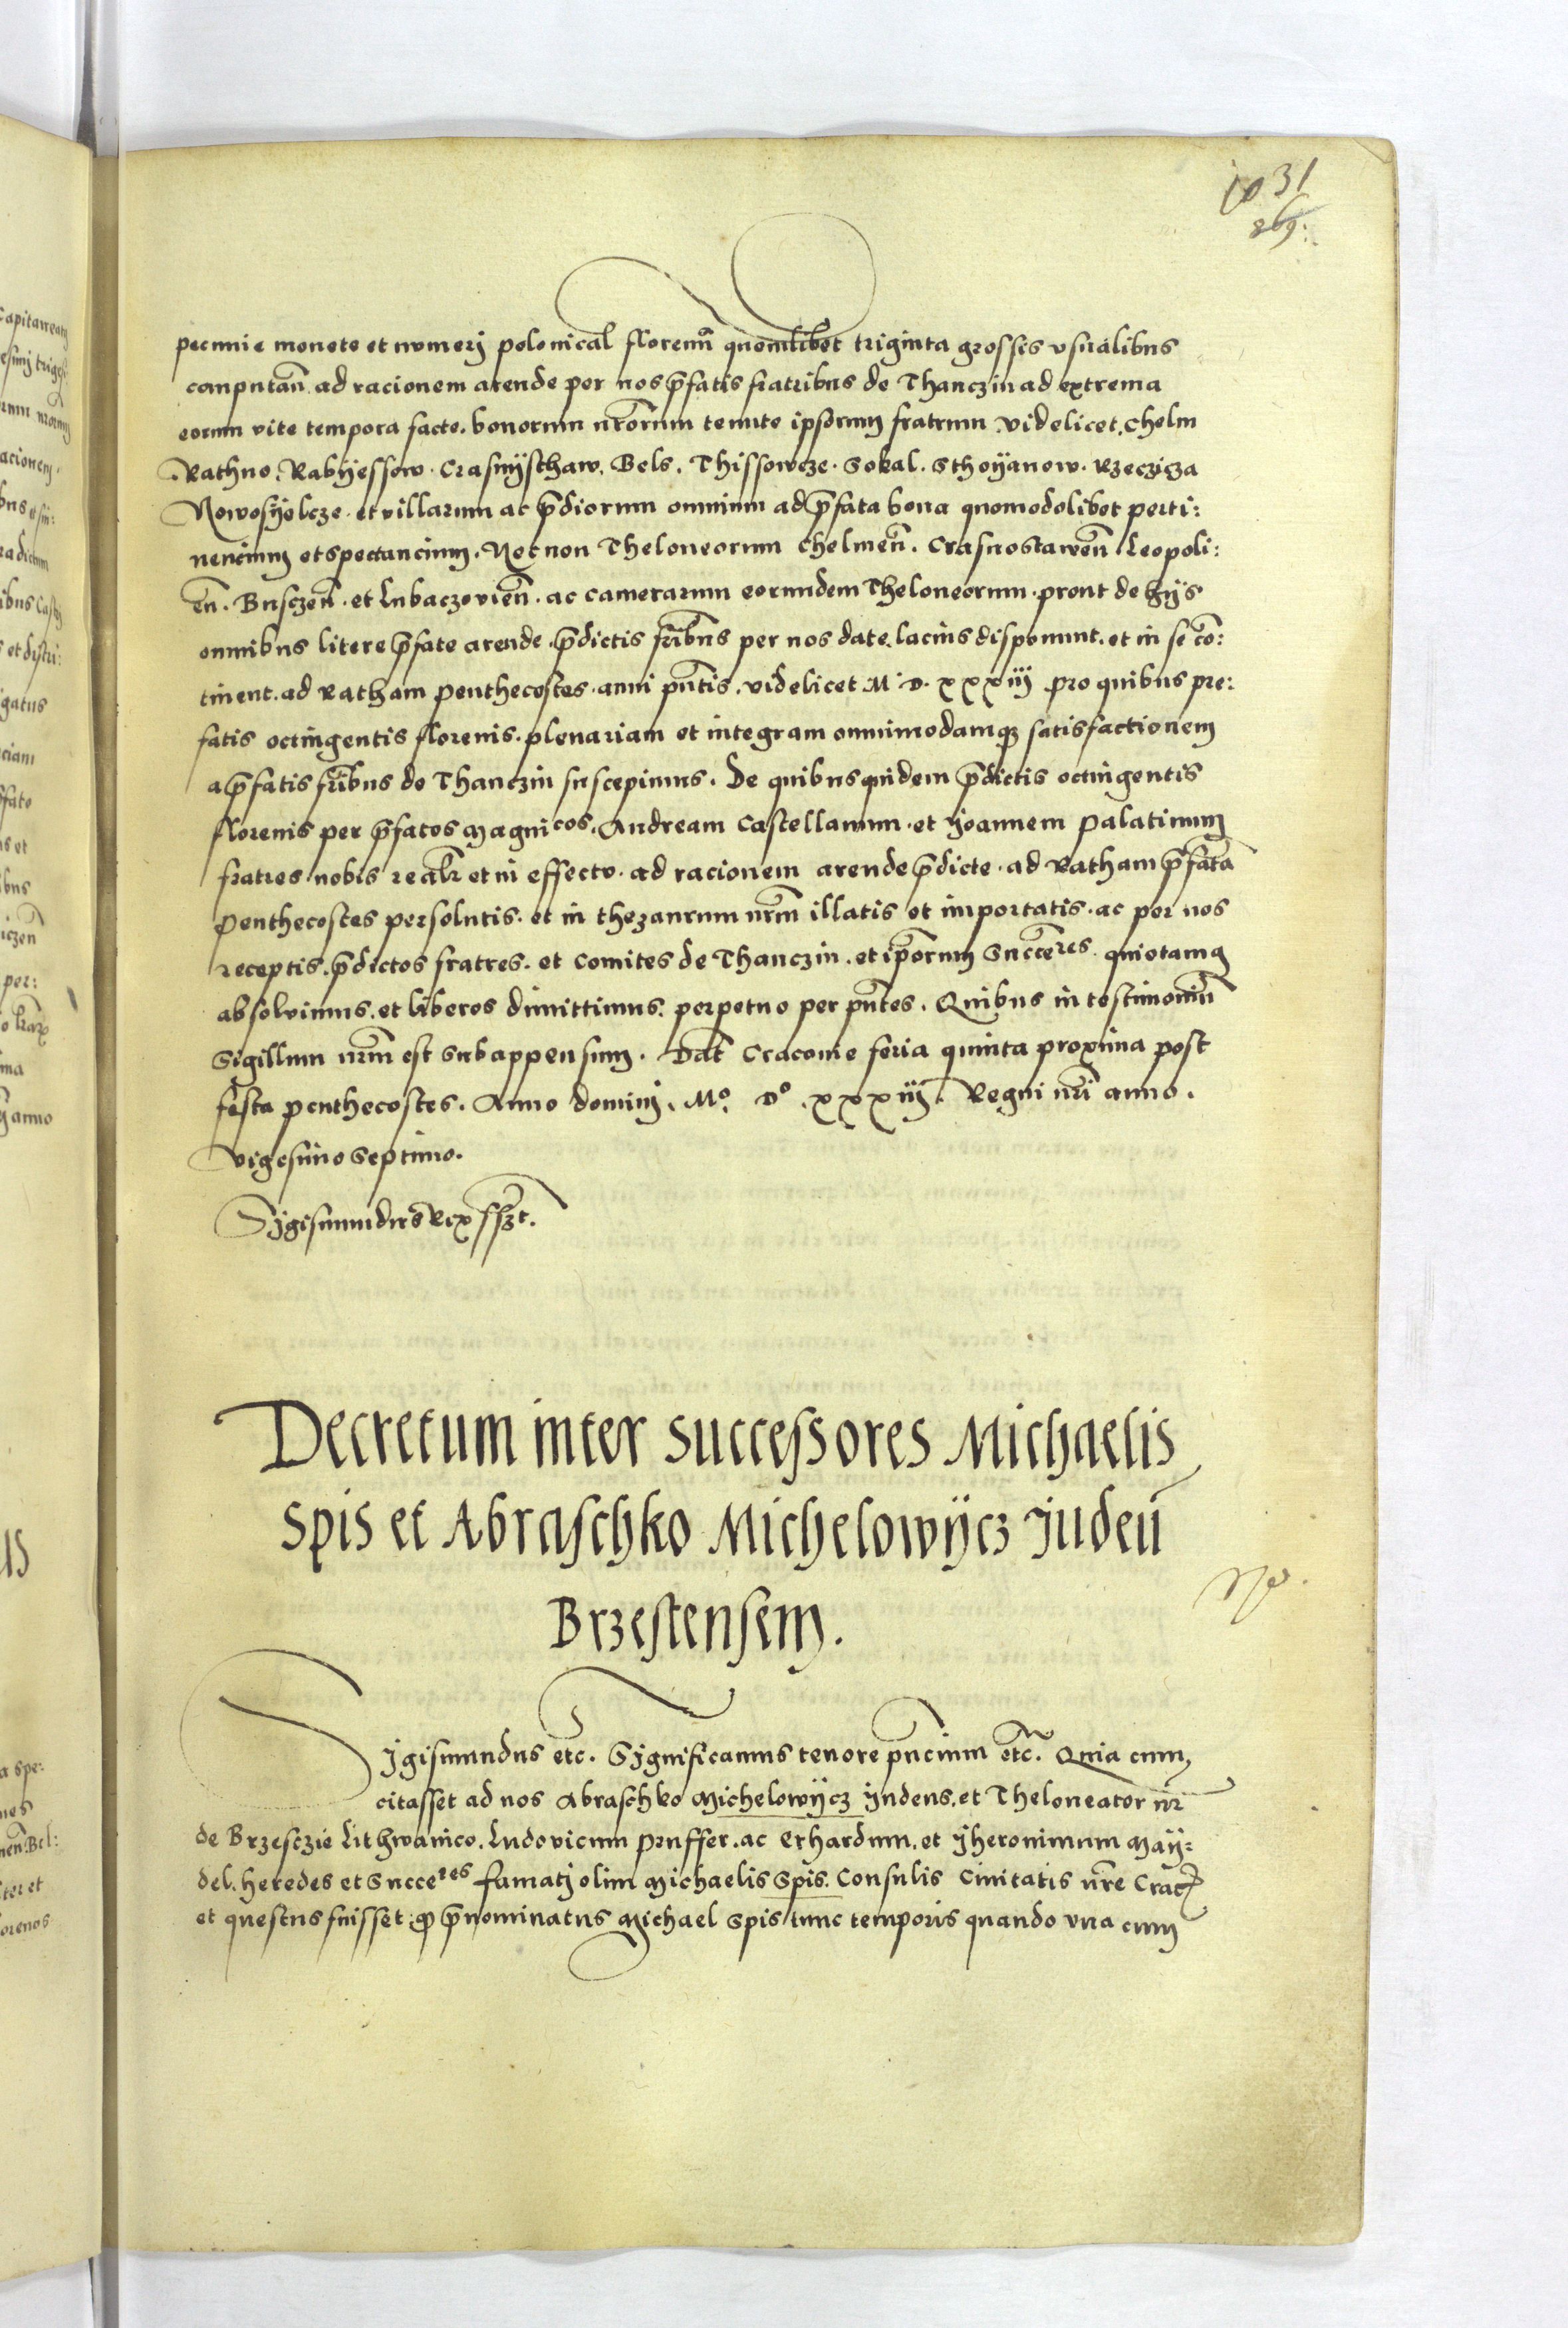 1031
869:
pecunie monete et numerj polonical florenũ quemlibet triginta grossis vsualibus
computañ ad racionem arende per nos p̃fatis fratribus de Thanczin ad extrema
eorum vite tempora facte. bonorum nr̃orum tenute ipsorum fratrum videlicet. Chelm
Rathno. Rabÿessow. Crasnÿsthaw. Bels. Thissowcze. Sokal. Sthoÿanow. Rzeczicza
Nowosÿelcze. et villarum ac p̃diorum omnium ad p̃fata bona quomodolibet perti:
nencium et spectancium. Nec non Theloneorum Chelmeñ. Crasnostaweñ Leopoli:
eñ. Busczeñ. et Lubaczovieñ. ac camerarum eorundem Theloneorum. prout de hijs
omnibus litere p̃fate arende. p̃dictis fr̃ibus per nos date. lacius disponunt. et in se cõ:
tinent. ad Ratham penthecostes. anni pñtis. videlicet M. D. xxxiij pro quibus pre:
fatis octingentis florenis. plenariam et integram omnimodamqȝ satisfactionem
a p̃fatis fr̃ibus de Thanczin suscepimus. De quibus quidem p̃dictis octingentis
florenis per p̃fatos Magnicos. Andream Castellanum. et Joannem palatinum
fratres. nobis realr̃ et in effectu. ad racionem arende p̃dicte. ad Ratham p̃fatã
penthecostes persolutis. et in thezaurum nr̃m illatis et importatis. ac per nos
receptis. p̃dictos fratres. et Comites de Thanczin. et ip̃orum Succeres. quietamq
absolvimus. et liberos dimittimus. perpetuo per pñtes. Quibus in testimoniũ
Sigillum nr̃m est Subappensum. Dat̃ Cracovie feria quinta proxima post
festa penthecostes. Anno dominj. Mo. Do. xxxiij. Regni nr̃i anno.
vigesimo Septimo.
Sigismundus Rex ss̃zt.
Decretum inter successores Michaelis
Spis et Abraschko Michelowÿcz Judeũ
Brzestensem.
Sigismundus etc̃. Significamus tenore pñcium etc̃. Quia cum
citasset ad nos Abraschko Michelowÿcz Judeus. et Theloneator nr̃
de Brzesczie Lithwanico. Ludovicum pruffer. ac Erhardum. et Jheronimum Maÿ:
del. heredes et Succeres famatj olim Michaelis Spis. Consulis Civitatis nr̃e Crac̃
et questus fuisset. qꝫ p̃nominatus Michael Spis tunc temporis quando vna cum